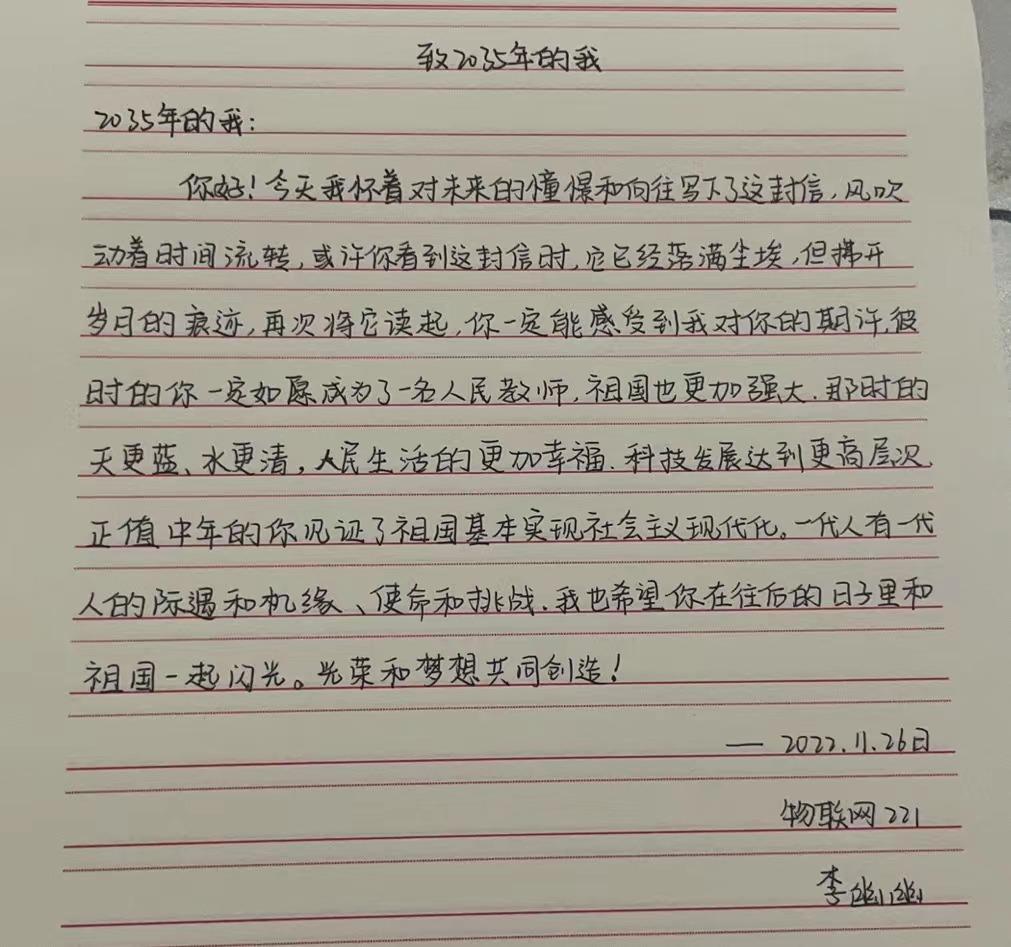 致2035年的我
2035年的我:
你好!今天我怀着对未来的憧憬和向往写下了这封信,风吹
动着时间流转,或许你看到这封信时,它已经落满尘埃,但拂开
岁月的痕迹,再次将它读起,你一定能感受到我对你的期许,彼
时的你一定如愿成为了一名人民教师,祖国也更加强大.那时的
天更蓝、水更清,人民生活的更加幸福.科技发展达到更高层次,
正值中年的你见证了祖国基本实现社会主义现代化。一代人有一代
人的际遇和机缘、使命和挑战.我也希望你在往后的日子里和
祖国一起闪光。光荣和梦想共同创造!
— 2022.11.26日
物联网221
李幽幽